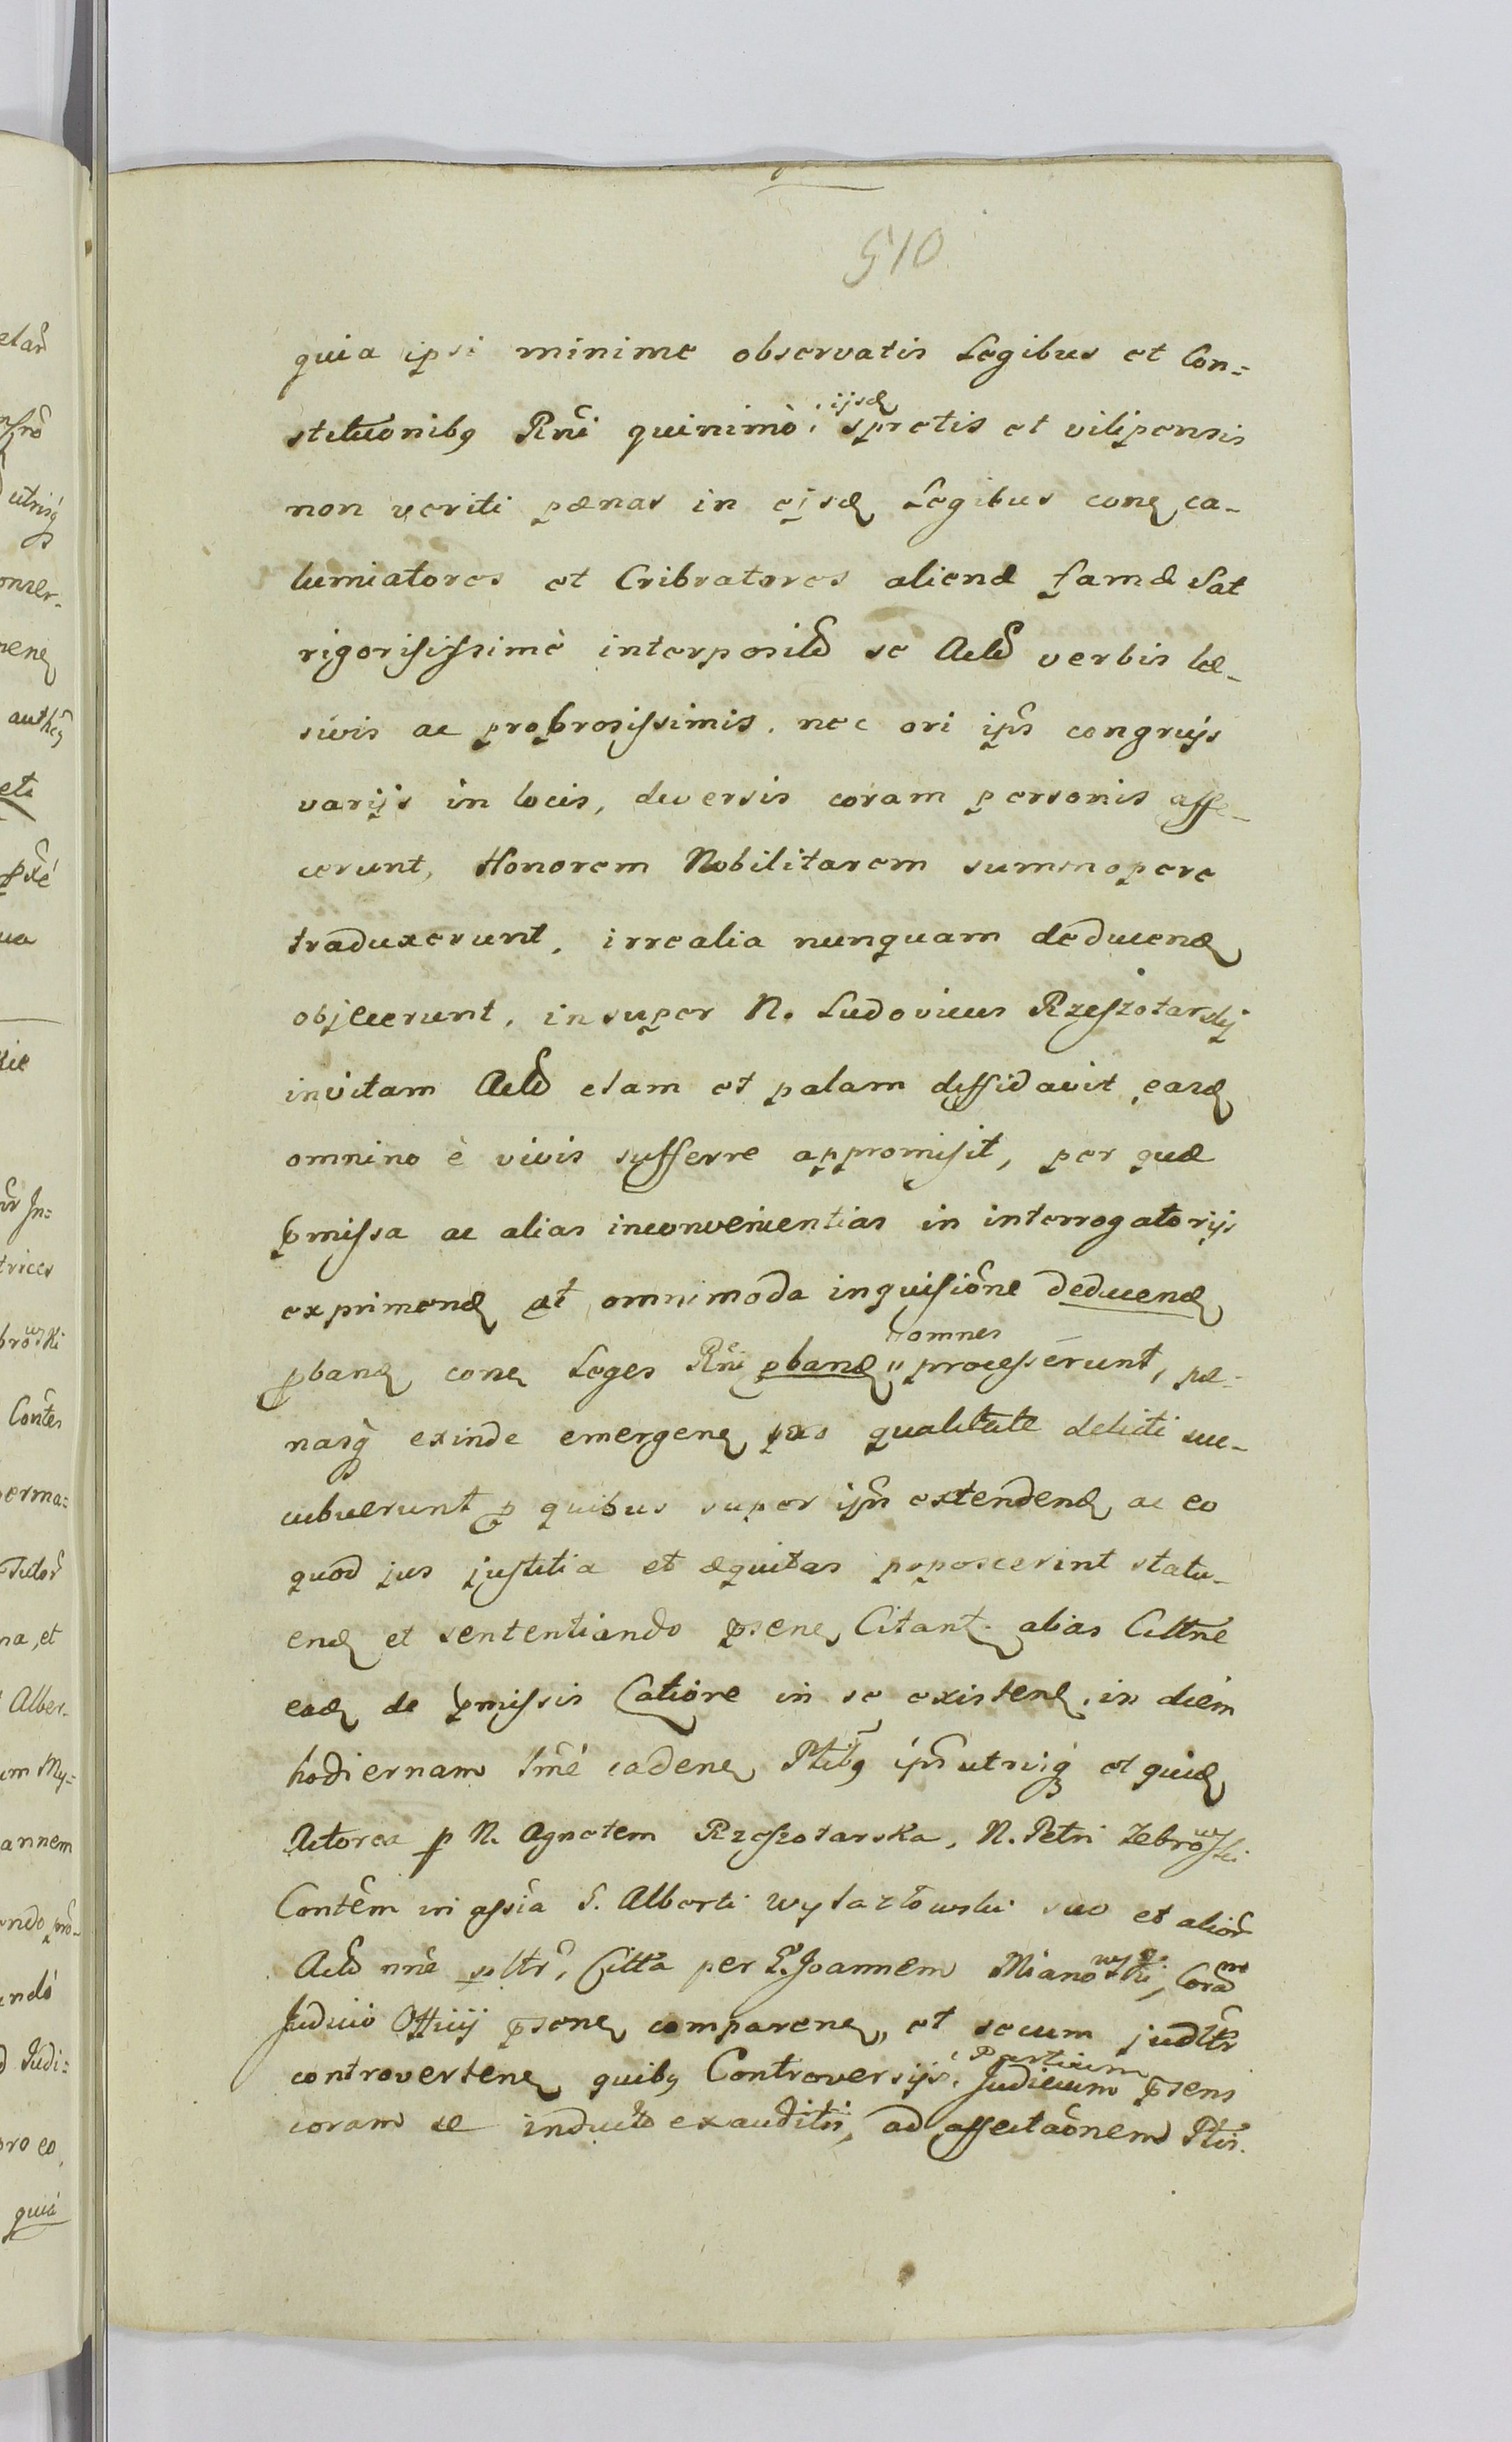 510
quia ipsi minime observatis Legibus et Con=
stituonibq Rni quinimò ijsd spretis et vilipensis
non veriti pænas in ejsd Legibus conq ca-
lumiatores et Cribratores alienæ famæ Sat
rigorisissimè interposit se Act verbis læ-
sivis ac probrosissimis, nec ori ips congrujs
varijs in locis, diversis coram personis affe-
cerunt, Honorem Nobilitarem summopere
traduxerunt, irrealia nunquam deducend
objecerunt, insuper N. Ludovicus Rzeszotarskj
invitam Act clam et palam diffidavit, eand
omnino è vivis sufferre appromisit, per quæ
pmissa ac alias inconvenientias in interrogatorijs
exprimend et omnimoda inquisiõne deducend
pband conq Leges Rni pband omnes processerunt, pæ-
nasq exinde emergenq pro qualitate delicti suc-
cubuerunt p quibus super ips extendend, ac eo
quod jus justitia et æquitas poposcerint statu-
end et sententiando psenq Citant. alias Cittne
ead de pmissis Catiõre in se existend, in diem
hodiernam tmè cadenq Ptibq ips utriq et quid
Actorea p N. Agnetem Rzeszotarska, N. Petri Zebrowski
Contem in assia G. Alberti Wylazłowski suo et alior
Act nne soltr, Citta per G. Joannem Mianowski, Coram
Judicio Officij psenq comparenq, et secum judltr
controvertenq quibq Controversijs Partium Judicium psens
coram se inductis exauditis, ad affectaõnem Ptis.